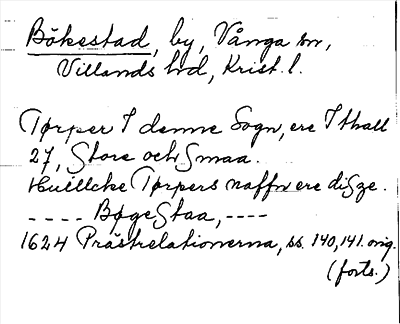 Bökestad, by, Vånga sn,
Villands hd, Krist. l.
Tørper I denne Sogn, ere I thall
27, Store och Smaa.
Huillcke Tørpers naffn ere disze.
---- BøgeStaa, ----
1624 Prästrelationerna, ss. 140, 141. orig.
(forts.)